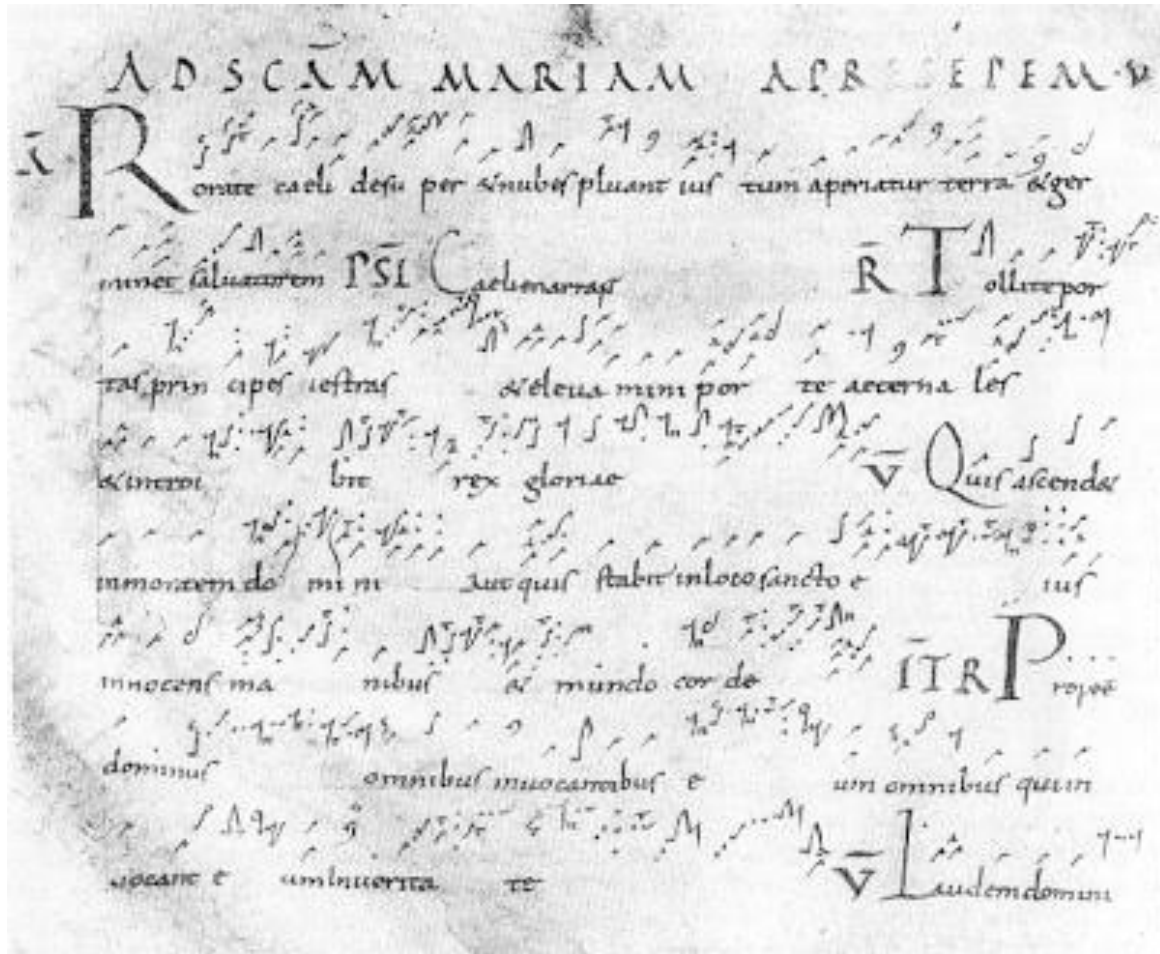 AD SC̄AM MARIAM A PRESEPEM
Ā Rorate caeli desu per & nubes pluant ius tum aperiatur terra & ger
minet saluatorem PSL Caeli enarrant
R̄ Tollite por
tas, prin cipes uestras & eleua mini por te aeterna les
& introi bit rex gloriae V̄ Quis ascend&
in montem do mi ni Aut quis stabit in loco sancto e ius
innocens ma nibus & mundo cor de IT R Prope ē
dominus omnibus inuocantibus e um omnibus qui in
uocant e um In uerita te V̄ Laudem domini